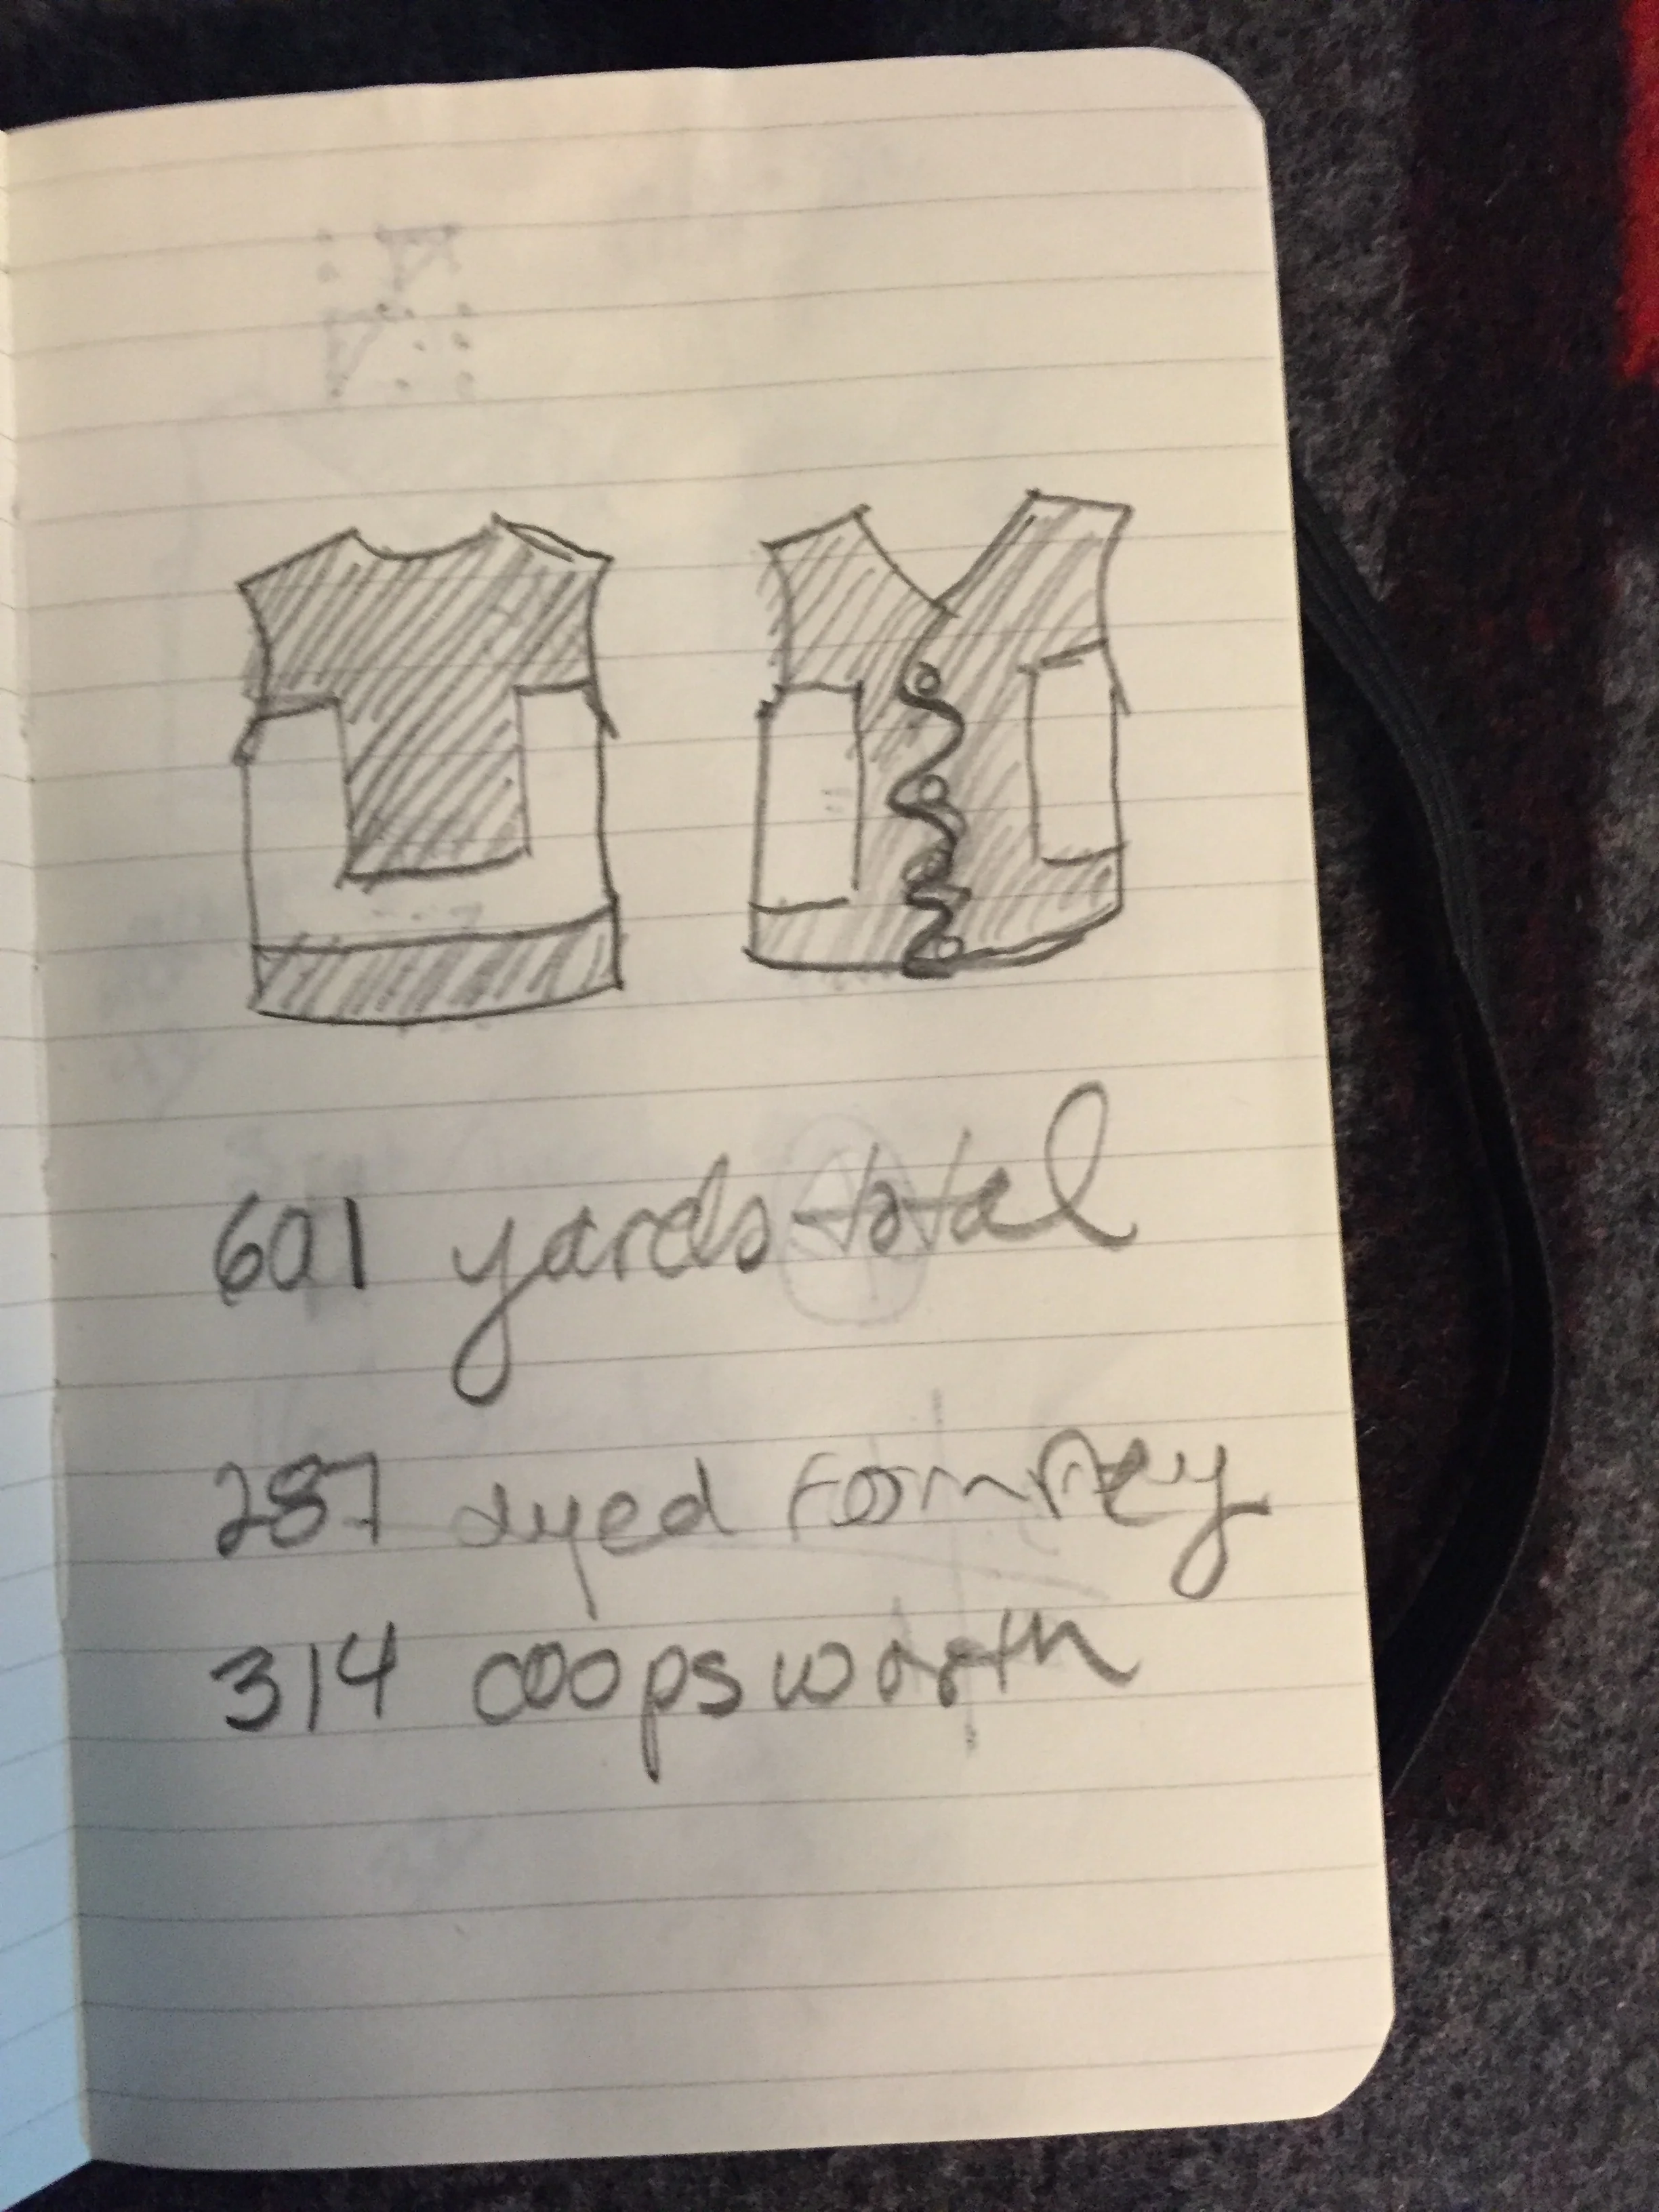 601 yards total
287 dyed Romney
314 coopsworth